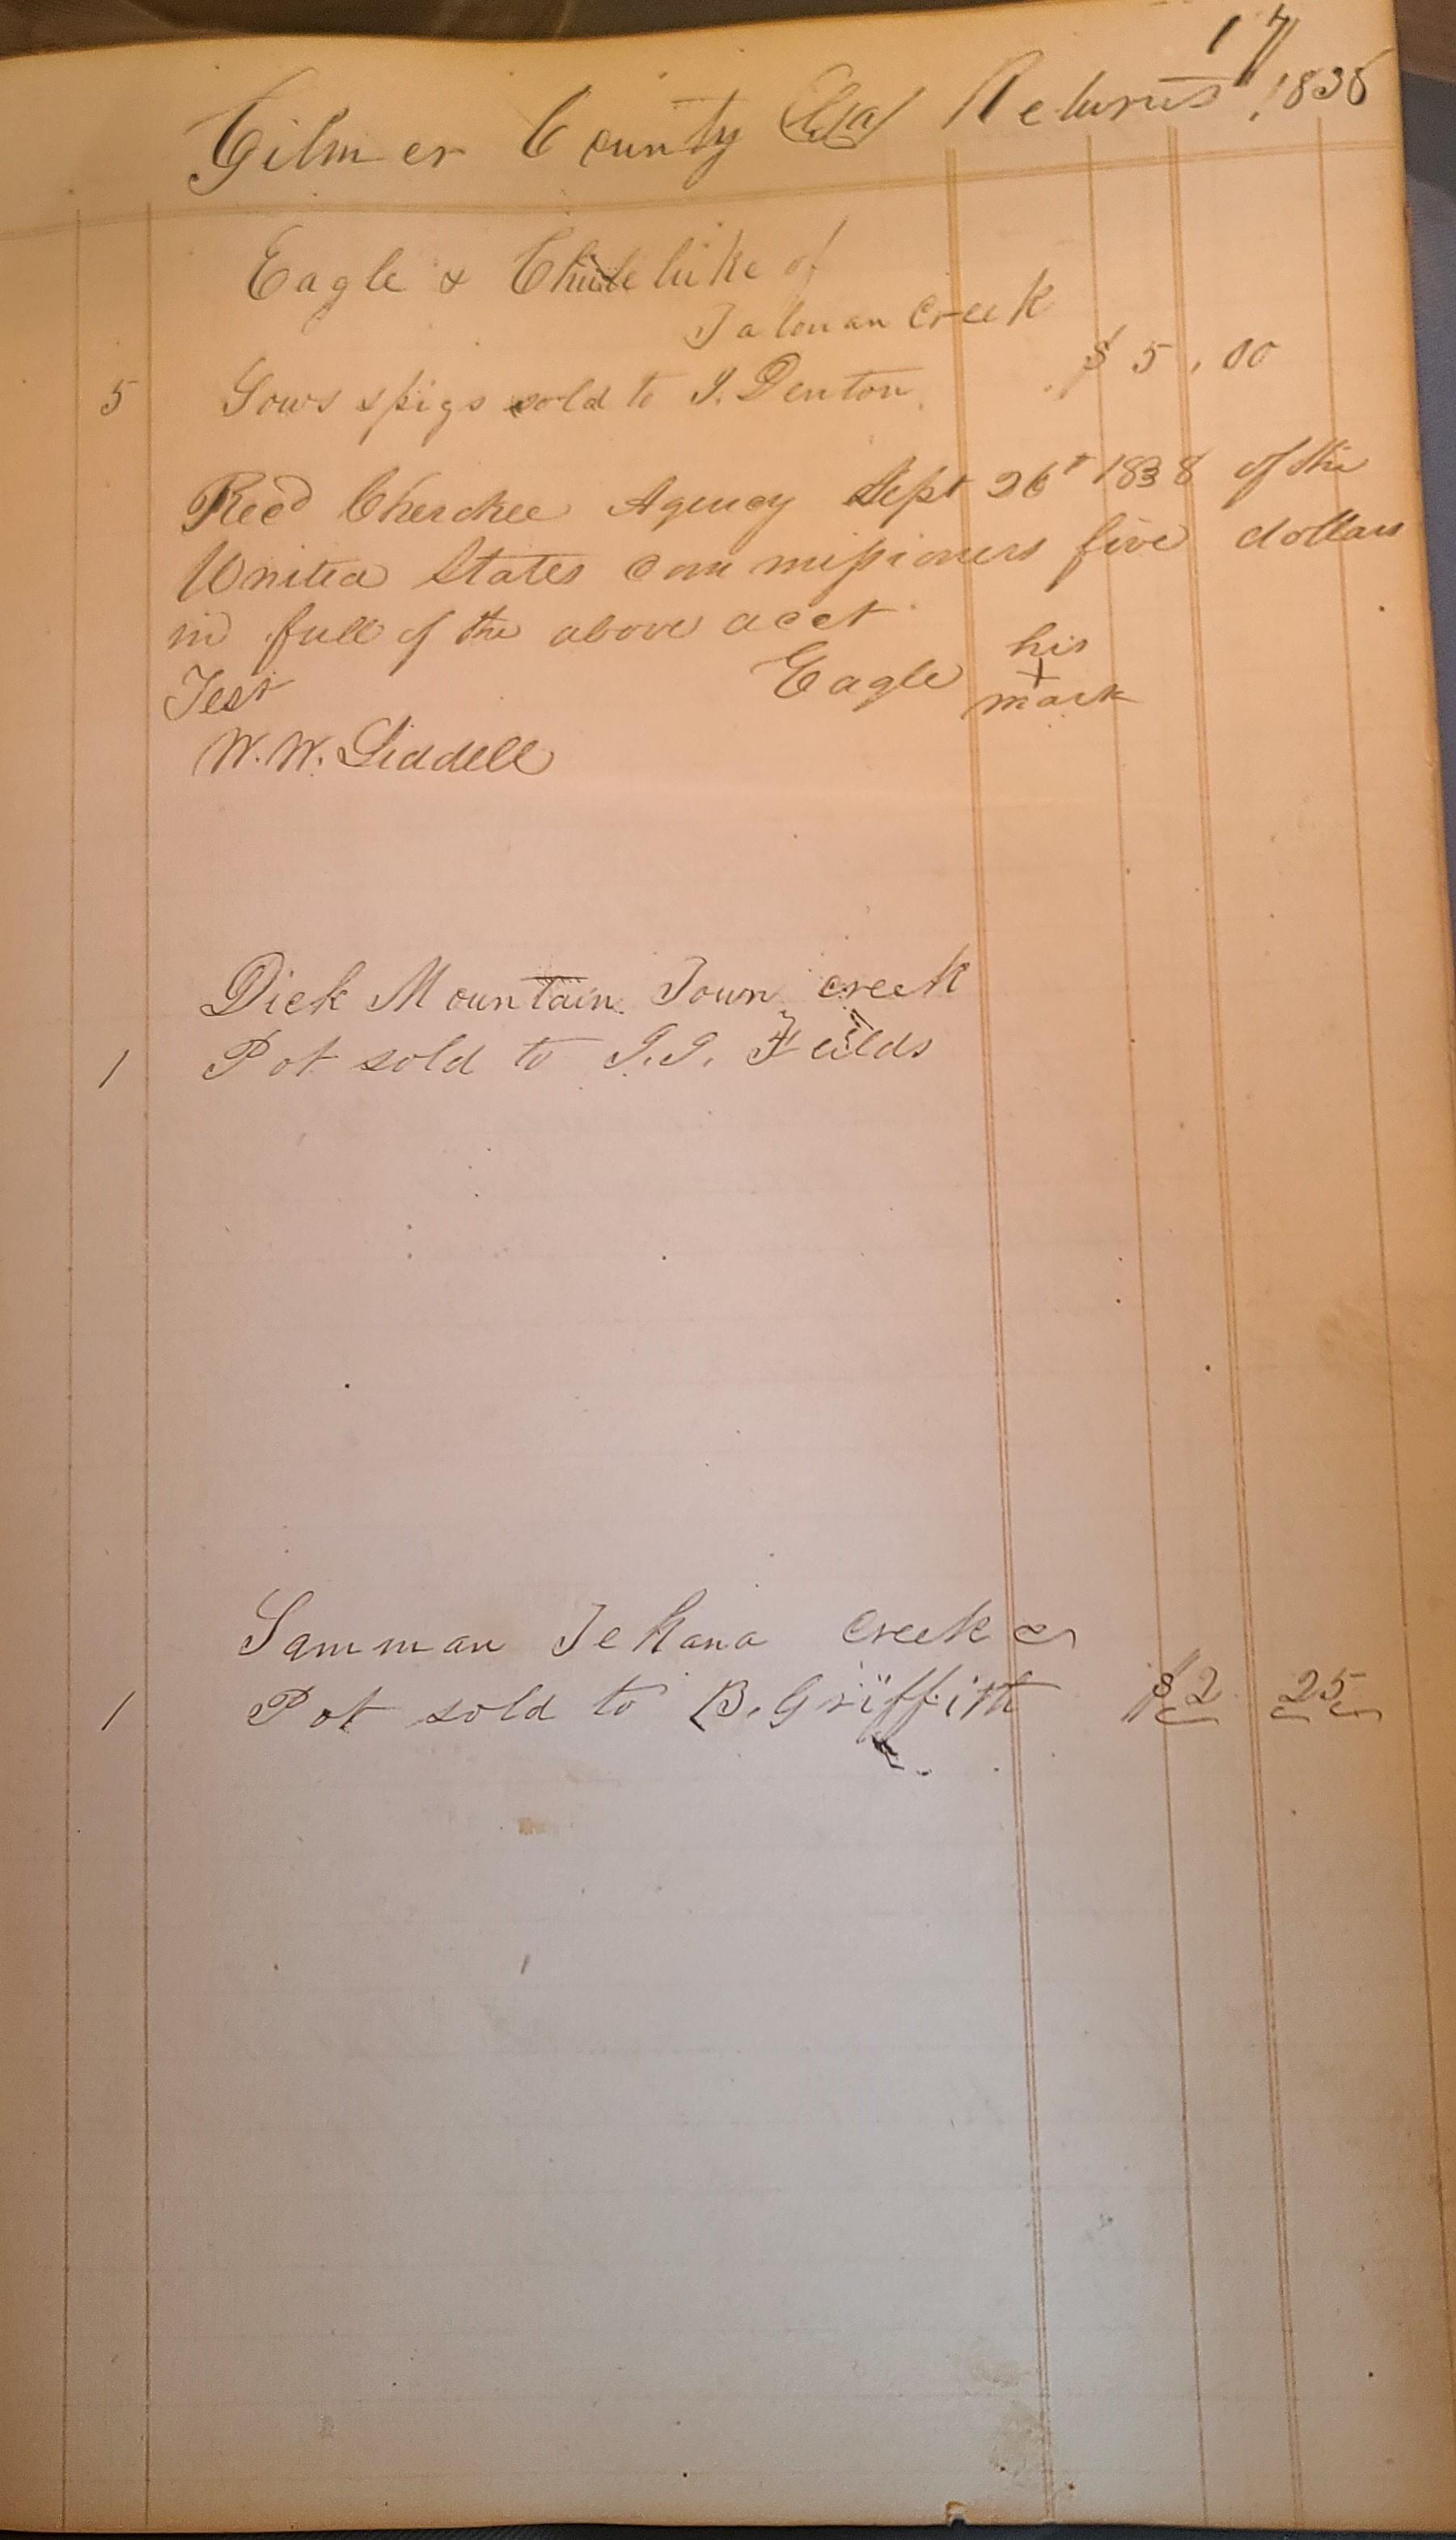 17
Gilmer County Ga Returns 1838
Eagle & of
Talonan Creek
5 Sows & pigs sold to J. Denton $5.00
Recd Cherokee Agency Sept 26t 1838 of the
United States commissioners five dollars
in full of the above acct
his
Test Eagle + mark
W.W. Liddell
Dick Mountain Town creek
1 Pot sold to J.J. Feilds
Samman Tekana creek
1 Pot sold to B. Griffith $2 25